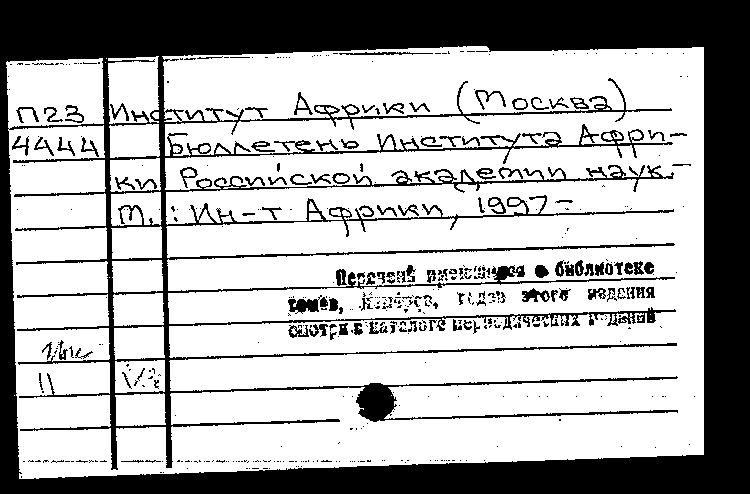 П23 Институт Африки (Москва)
4444 Бюллетень Института Афри-
ки Российской академии наук.-
М.: Ин-т Африки, 1997-
Перечень имеющихся в библиотеке
томов, номеров, годов этого издания
смотри в каталоге периодических изданий
11